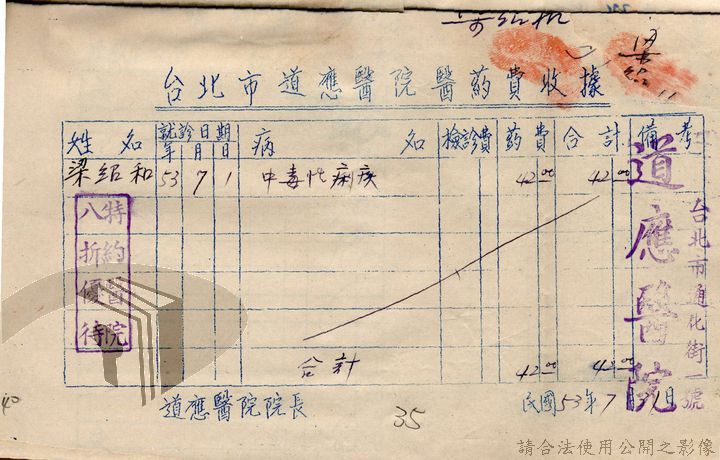 梁紹
台北市道應醫院醫葯費收據
姓名 就診日期 年月日 病名 檢診費 葯費 合計 備考
梁紹和 53 7 1 中毒性痢疾 42.00 42.00
特約醫院
八折優待
道應醫院
台北市通化街一號
合計 42.00 42.00
道應醫院院長
民國53年7月 日
35
40
請合法使用公開之影像